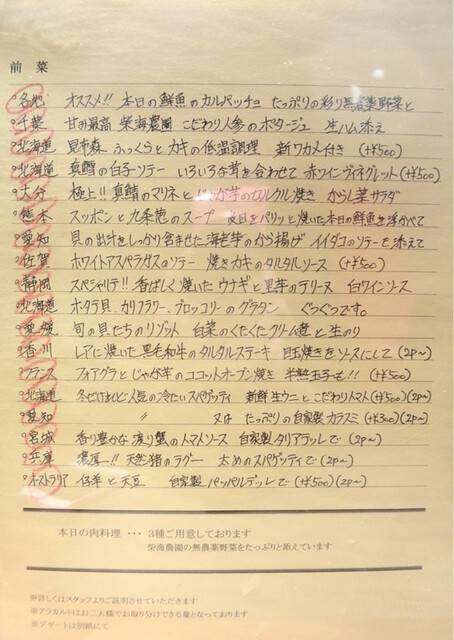 前菜
各地 オススメ!! 本日の鮮魚のカルパッチョ たっぷりの彩り無農薬野菜と
千葉 甘み最高 柴海農園 こだわり人参のポタージュ 生ハム添え
北海道 昆布森 ふっくらとカキの低温調理 新ワカメ付き (+¥500)
北海道 真鱈の白子ソテー いろいろな茸を合わせて 赤ワインヴィネグレット(+¥500)
大分 極上!! 真鯛のマリネとじゃが芋のガルクル焼き からし菜サラダ
熊本 スッポンと九条葱のスープ 皮目をパリッと焼いた本日の鮮魚を浮かべて
愛知 貝の出汁をしっかり含ませた海老芋のから揚げ イイダコのソテーを添えて
佐賀 ホワイトアスパラガスのソテー 焼きカキのタルタルソース (+¥500)
静岡 スペシャリテ!! 香ばしく焼いたウナギと里芋のテリーヌ 白ワインソース
北海道 ホタテ貝、カリフラワー、ブロッコリーのグラタン ぐつぐつです。
愛媛 旬の貝たちのリゾット 白菜のくたくたクリーム煮と生のり
香川 レアに焼いた黒毛和牛のタルタルステーキ 目玉焼きをソースにして (2p~)
フランス フォアグラとじゃが芋のココットオーブン焼き 半熟玉子も!! (+¥500)
北海道 冬だけれど人気の冷たいスパゲッティ 新鮮生ウニとこだわりトマト(+¥500)(2p~)
愛知 〃 又は たっぷりの自家製カラスミ (+¥300)(2p~)
宮城 香り豊かな渡り蟹のトマトソース 自家製タリアテッレで (2p~)
兵庫 濃厚!! 天然猪のラグー 太めのスパゲッティで (2p~)
オーストラリア 仔羊と天豆 自家製パッパルデッレで (+¥500)(2p~)
本日の肉料理 ・・・ 3種ご用意しております
柴海農園の無農薬野菜をたっぷりと添えています
※詳しくはスタッフよりご説明させていただきます
※アラカルトはお二人様でお取り分けできる量となっております
※デザートは別紙にて